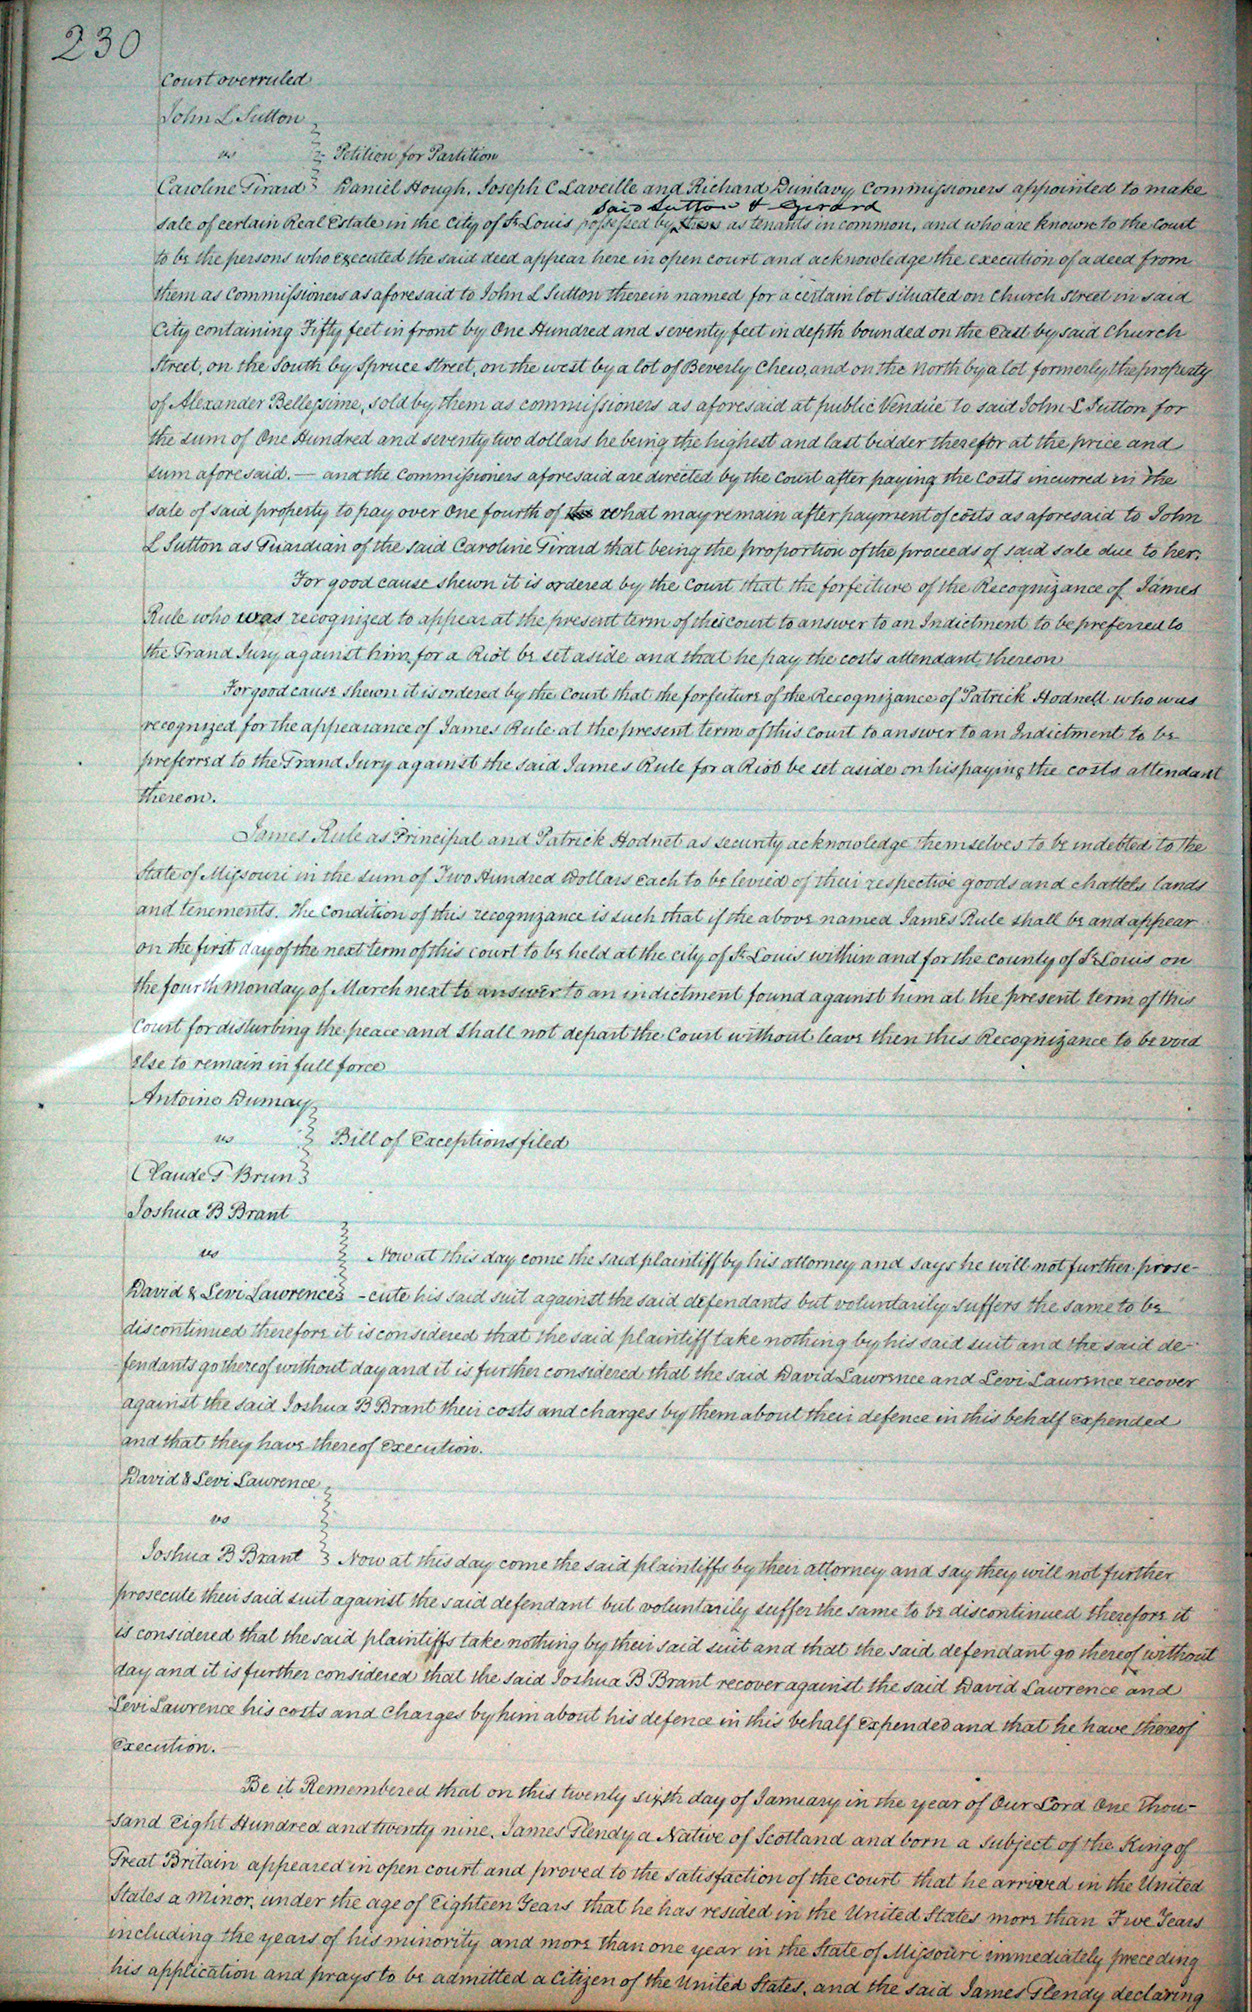 230
Court overruled
John L Sutton
vs
Petition for Partition
Caroline Girard Daniel Hough, Joseph C Laveille and Richard Dunlavy Commissioners appointed to make
said Sutton & Girard
sale of certain Real Estate in the City of St Louis possessed by them as tenants in common, and who are known to the Court
to be the persons who executed the said deed appear here in open court and acknowledge the execution of a deed from
them as Commissioners as aforesaid to John L Sutton therein named for a certain lot situated on Church Street in said
City containing Fifty feet in front by One Hundred and seventy feet in depth bounded on the East by said Church
Street, on the South by Spruce Street, on the west by a lot of Beverly Chew, and on the North by a lot formerly the property
of Alexander Bellessime, sold by them as commissioners as aforesaid at public Vendue to said John L Sutton for
the sum of One Hundred and seventy two dollars he being the highest and last bidder therefor at the price and
sum aforesaid. — and the Commissioners aforesaid are directed by the Court after paying the Costs incurred in the
sale of said property to pay over One fourth of the what may remain after payment of costs as aforesaid to John
L Sutton as Guardian of the said Caroline Girard that being the proportion of the proceeds of said sale due to her.
For good cause shewn it is ordered by the Court that the forfeiture of the Recognizance of James
Rule who was recognized to appear at the present term of this court to answer to an Indictment to be preferred to
the Grand Jury against him for a Riot be set aside and that he pay the costs attendant thereon
For good cause shewn it is ordered by the Court that the forfeiture of the Recognizance of Patrick Hodnett who was
recognized for the appearance of James Rule at the present term of this Court to answer to an Indictment to be
preferred to the Grand Jury against the said James Rule for a Riot be set aside on his paying the costs attendant
thereon.
James Rule as Principal and Patrick Hodnet as security acknowledge themselves to be indebted to the
State of Missouri in the sum of Two Hundred Dollars each to be levied of their respective goods and chattels lands
and tenements. The Condition of this recognizance is such that if the above named James Rule shall be and appear
on the first day of the next term of this Court to be held at the city of St Louis within and for the county of St Louis on
the fourth Monday of March next to answer to an indictment found against him at the present term of this
Court for disturbing the peace and shall not depart the Court without leave then this Recognizance to be void
else to remain in full force
Antoine Dumay
vs
Bill of Exceptions filed
Claude F Brun
Joshua B Brant
vs
Now at this day come the said plaintiff by his attorney and says he will not further prose-
David & Levi Lawrence - cute his said suit against the said defendants but voluntarily suffers the same to be
discontinued therefore it is considered that the said plaintiff take nothing by his said suit and the said de-
fendants go thereof without day and it is further considered that the said David Lawrence and Levi Lawrence recover
against the said Joshua B Brant their costs and charges by them about their defence in this behalf expended
and that they have thereof execution.
David & Levi Lawrence
vs
Joshua B Brant Now at this day come the said plaintiffs by their attorney and say they will not further
prosecute their said suit against the said defendant but voluntarily suffer the same to be discontinued therefore it
is considered that the said plaintiffs take nothing by their said suit and that the said defendant go thereof without
day and it is further considered that the said Joshua B Brant recover against the said David Lawrence and
Levi Lawrence his costs and charges by him about his defence in this behalf expended and that he have thereof
execution.
Be it Remembered that on this twenty sixth day of January in the year of Our Lord One Thou-
sand Eight Hundred and twenty nine, James Glendy a Native of Scotland and born a subject of the King of
Great Britain appeared in open court and proved to the satisfaction of the court that he arrived in the United
States a Minor, under the age of Eighteen Years that he has resided in the United States more than Five Years
including the years of his minority and more than one year in the State of Missouri immediately preceding
his application and prays to be admitted a Citizen of the United States, and the said James Glendy declaring